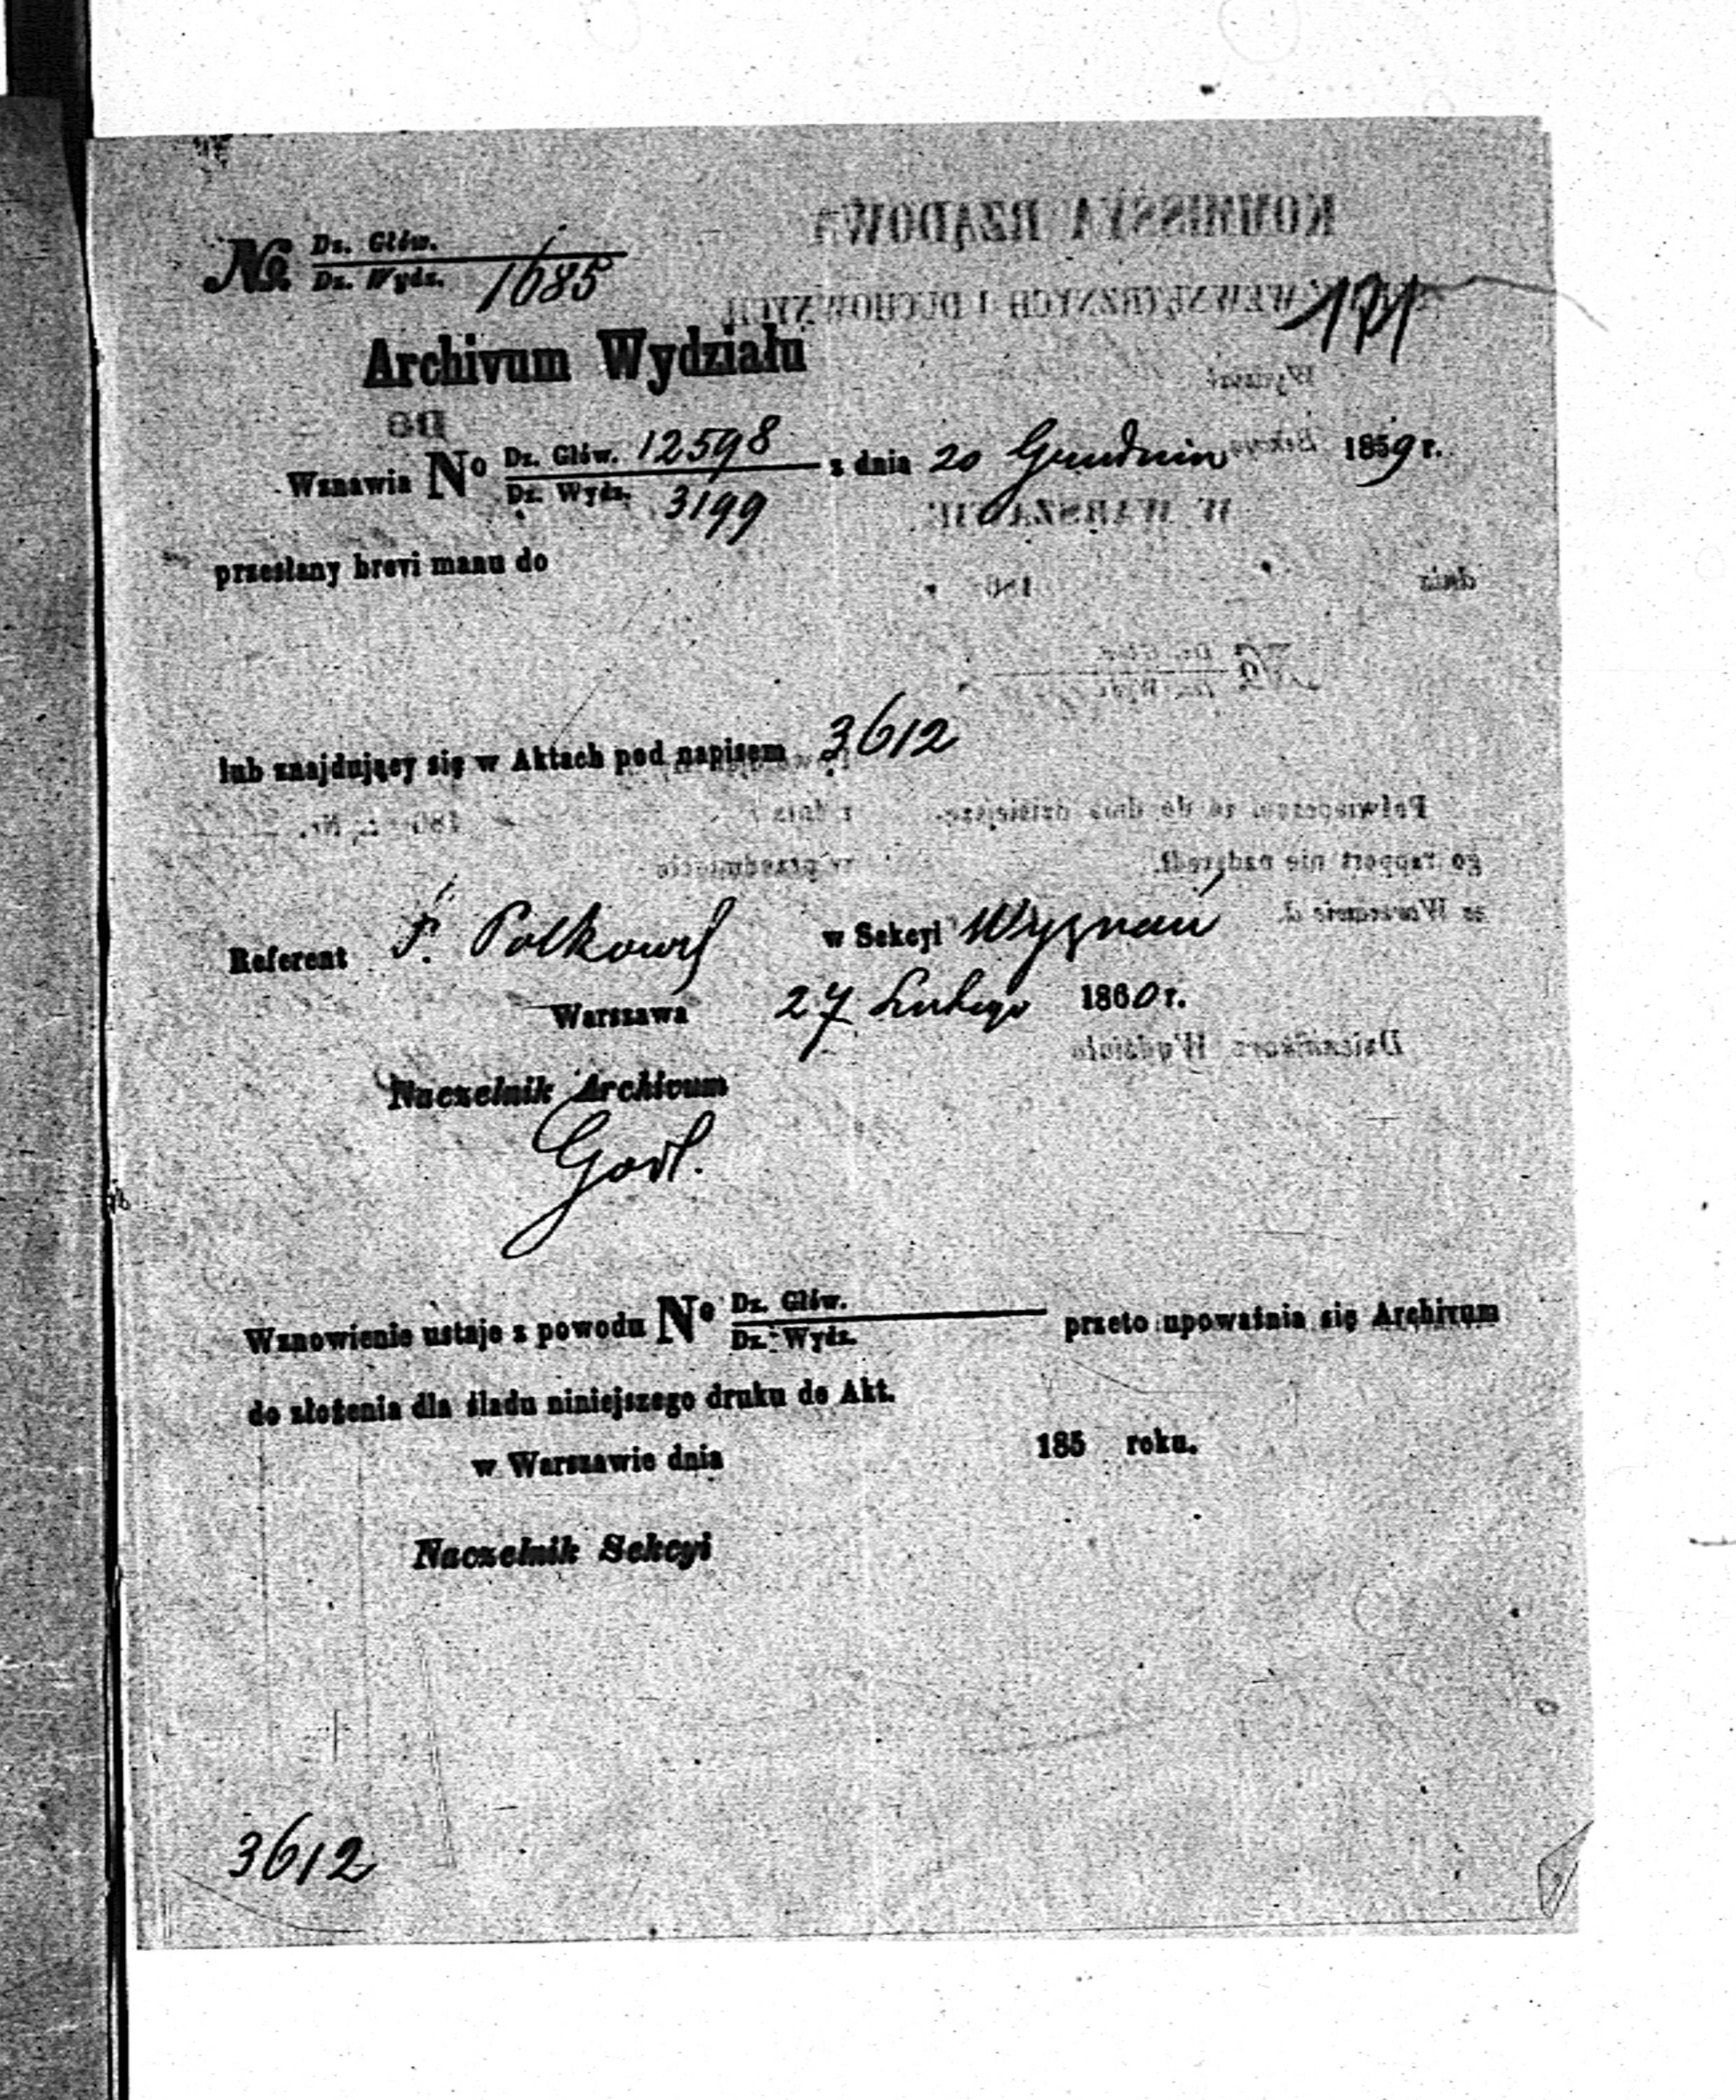 No. Dz. Głów.
Dz. Wydz. 1685
171
Archivum Wydziału
Wznawia No Dz. Głów. 12598 z dnia 20 Grudnia 1859 r.
Dz. Wydz. 3199
przesłany brevi manu do
lub znajdujący się w Aktach pod napisem 3612
Referent F. Polkows w Sekcyi Wyznań
Warszawa 27 Lutego 1860 r.
Naczelnik Archivum
Godl.
Wznowienie ustaje z powodu No Dz. Głów. przeto upoważnia się Archivum
Dz. Wydz.
do złożenia dla śladu niniejszego druku do Akt.
w Warszawie dnia 185 roku.
Naczelnik Sekcyi
3612